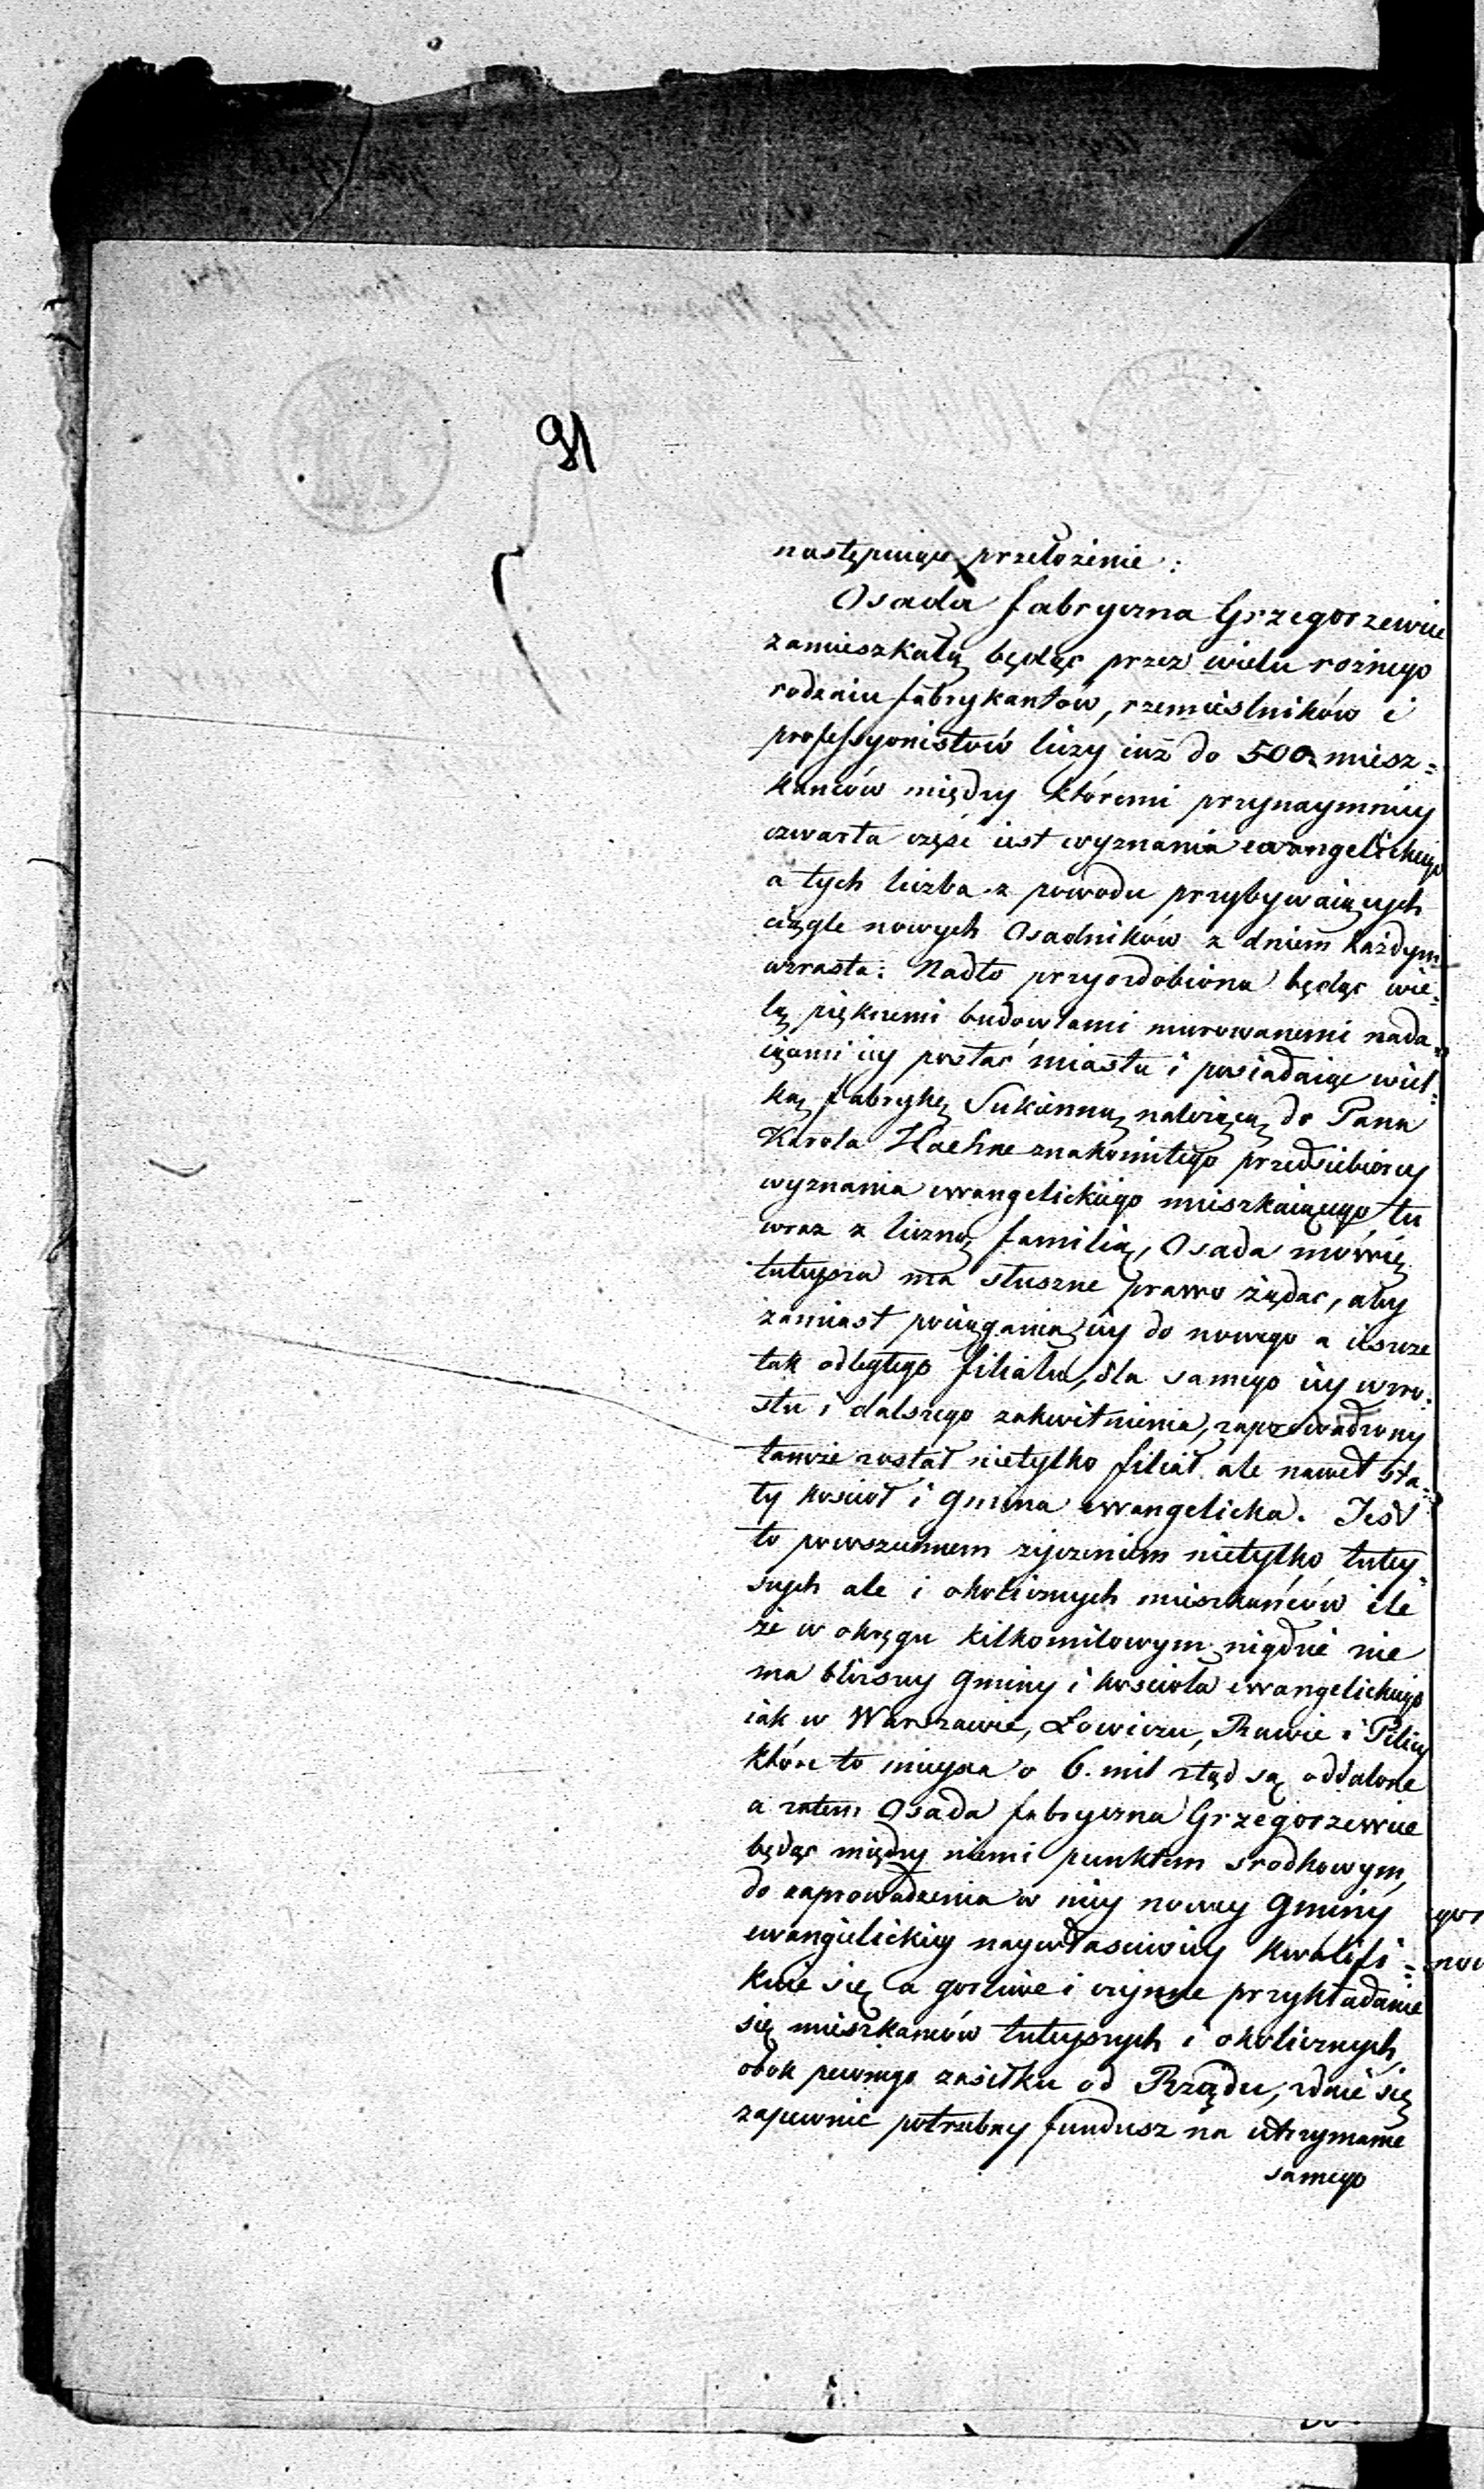 91
następuiące przełożenie:
Osada fabryczna Grzegorzewice
zamieszkałą będąc przez wielu rożnego
rodzaiu fabrykantów, rzemieslników i
professyonistów liczy iuż do 500. miesz=
kańców między któremi przynaymniey
czwarta część iest wyznania ewangelickiego
a tych liczba z powodu przybywaiących
ciągle nowych Osadników z dniem każdym
wzrasta: Nadto przyozdobiona będąc wie=
lą pięknemi budowlami murowanemi nada=
iącemi iey postać miasta i posiadaiąc wiel=
ką fabrykę Sukienną należącą do Pana
Karola Haehne znakomitego przedsiebiorcy
wyznania ewangelickiego mieszkaiącego tu
wraz z liczną familią, Osada mówię
tuteysza ma słuszne prawo żądać, aby
zamiast pociągania iey do nowego a ieszcze
tak odległego filiału, dla samego iey wzro=
stu i dalszego zakwitnienia, zaprowadzony
tamże został nietylko filiał ale nawet sta=
ły kościoł i gmina ewangelicka. Jest
to powszechnem życzeniem nietylko tutey=
szych ale i okolicznych mieszkańców ile
że w okręgu kilkomilowym nigdzie nie
ma bliższey gminy i kościoła ewangelickiego
iak w Warszawie, Łowiczu, Rawie i Pilicy
które to mieysca o 6. mil ztąd są oddalone
a zatem Osada fabryczna Grzegorzewice
będąc między niemi punktem srodkowym,
do zaprowadzenia w niey nowey Gminy
ewangielickiey naywłasciwiey kwalifi=
kuie się a gorliwe i czynne przykładanie
się mieszkańców tuteyszych i okolicznych,
obok pewnego zasiłku od Rządu, zdaie się
zapewnić potrzebny fundusz na utrzymanie
samego